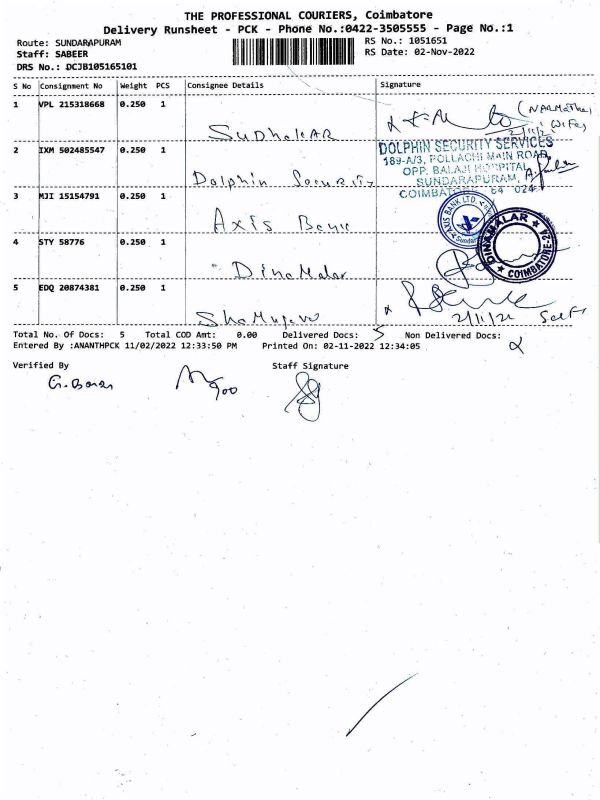 THE PROFESSIONAL COURIERS, Coimbatore
Delivery Runsheet - PCK - Phone No.:0422-3505555 - Page No.:1
Route: SUNDARAPURAM
RS No.: 1051651
Staff: SABEER
RS Date: 02-Nov-2022
DRS No.: DCJB105165101
S No Consignment No Weight PCS Consignee Details Signature
1 VPL 215318668 0.250 1 Sudhakar
(Narmatha)
2/11/2 (Wife)
2 IXM 502485547 0.250 1 Dolphin Security
DOLPHIN SECURITY SERVICES
189-A/3, POLLACHI MAIN ROAD,
OPP. BALAJI HOSPITAL,
SUNDARAPURAM,
COIMBATORE 64 024
3 MJI 15154791 0.250 1 Axis Bank
AXIS BANK LTD.
4 STY 58776 0.250 1 DinaMalar
DINAMALAR
COIMBATORE-24
5 EDQ 20874381 0.250 1
2/11/22 Self
Total No. Of Docs: 5 Total COD Amt: 0.00 Delivered Docs: 5 Non Delivered Docs:
Entered By :ANANTHPCK 11/02/2022 12:33:50 PM Printed On: 02-11-2022 12:34:05
Verified By Staff Signature